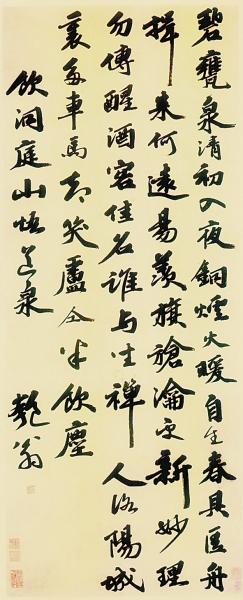 碧甕泉清初入夜銅爐火暖自生春具區舟
楫来何遠陽羨旗槍瀹更新妙理
勿傳醒酒客佳名誰与坐禪人洛陽城
裏多車馬却笑盧仝半飲塵
飲洞庭山悟道泉 匏翁